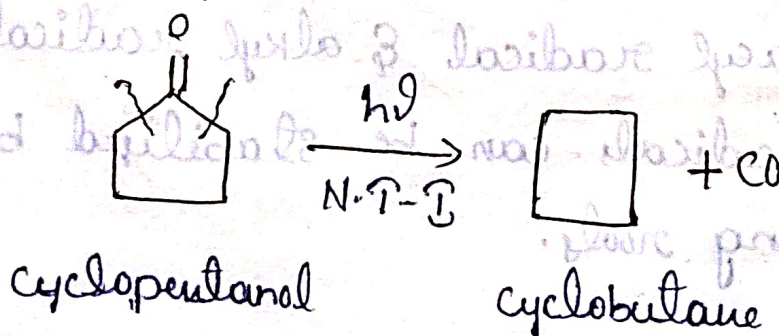 O
hν
N.T-I
+ CO
cyclopentanol
cyclobutane